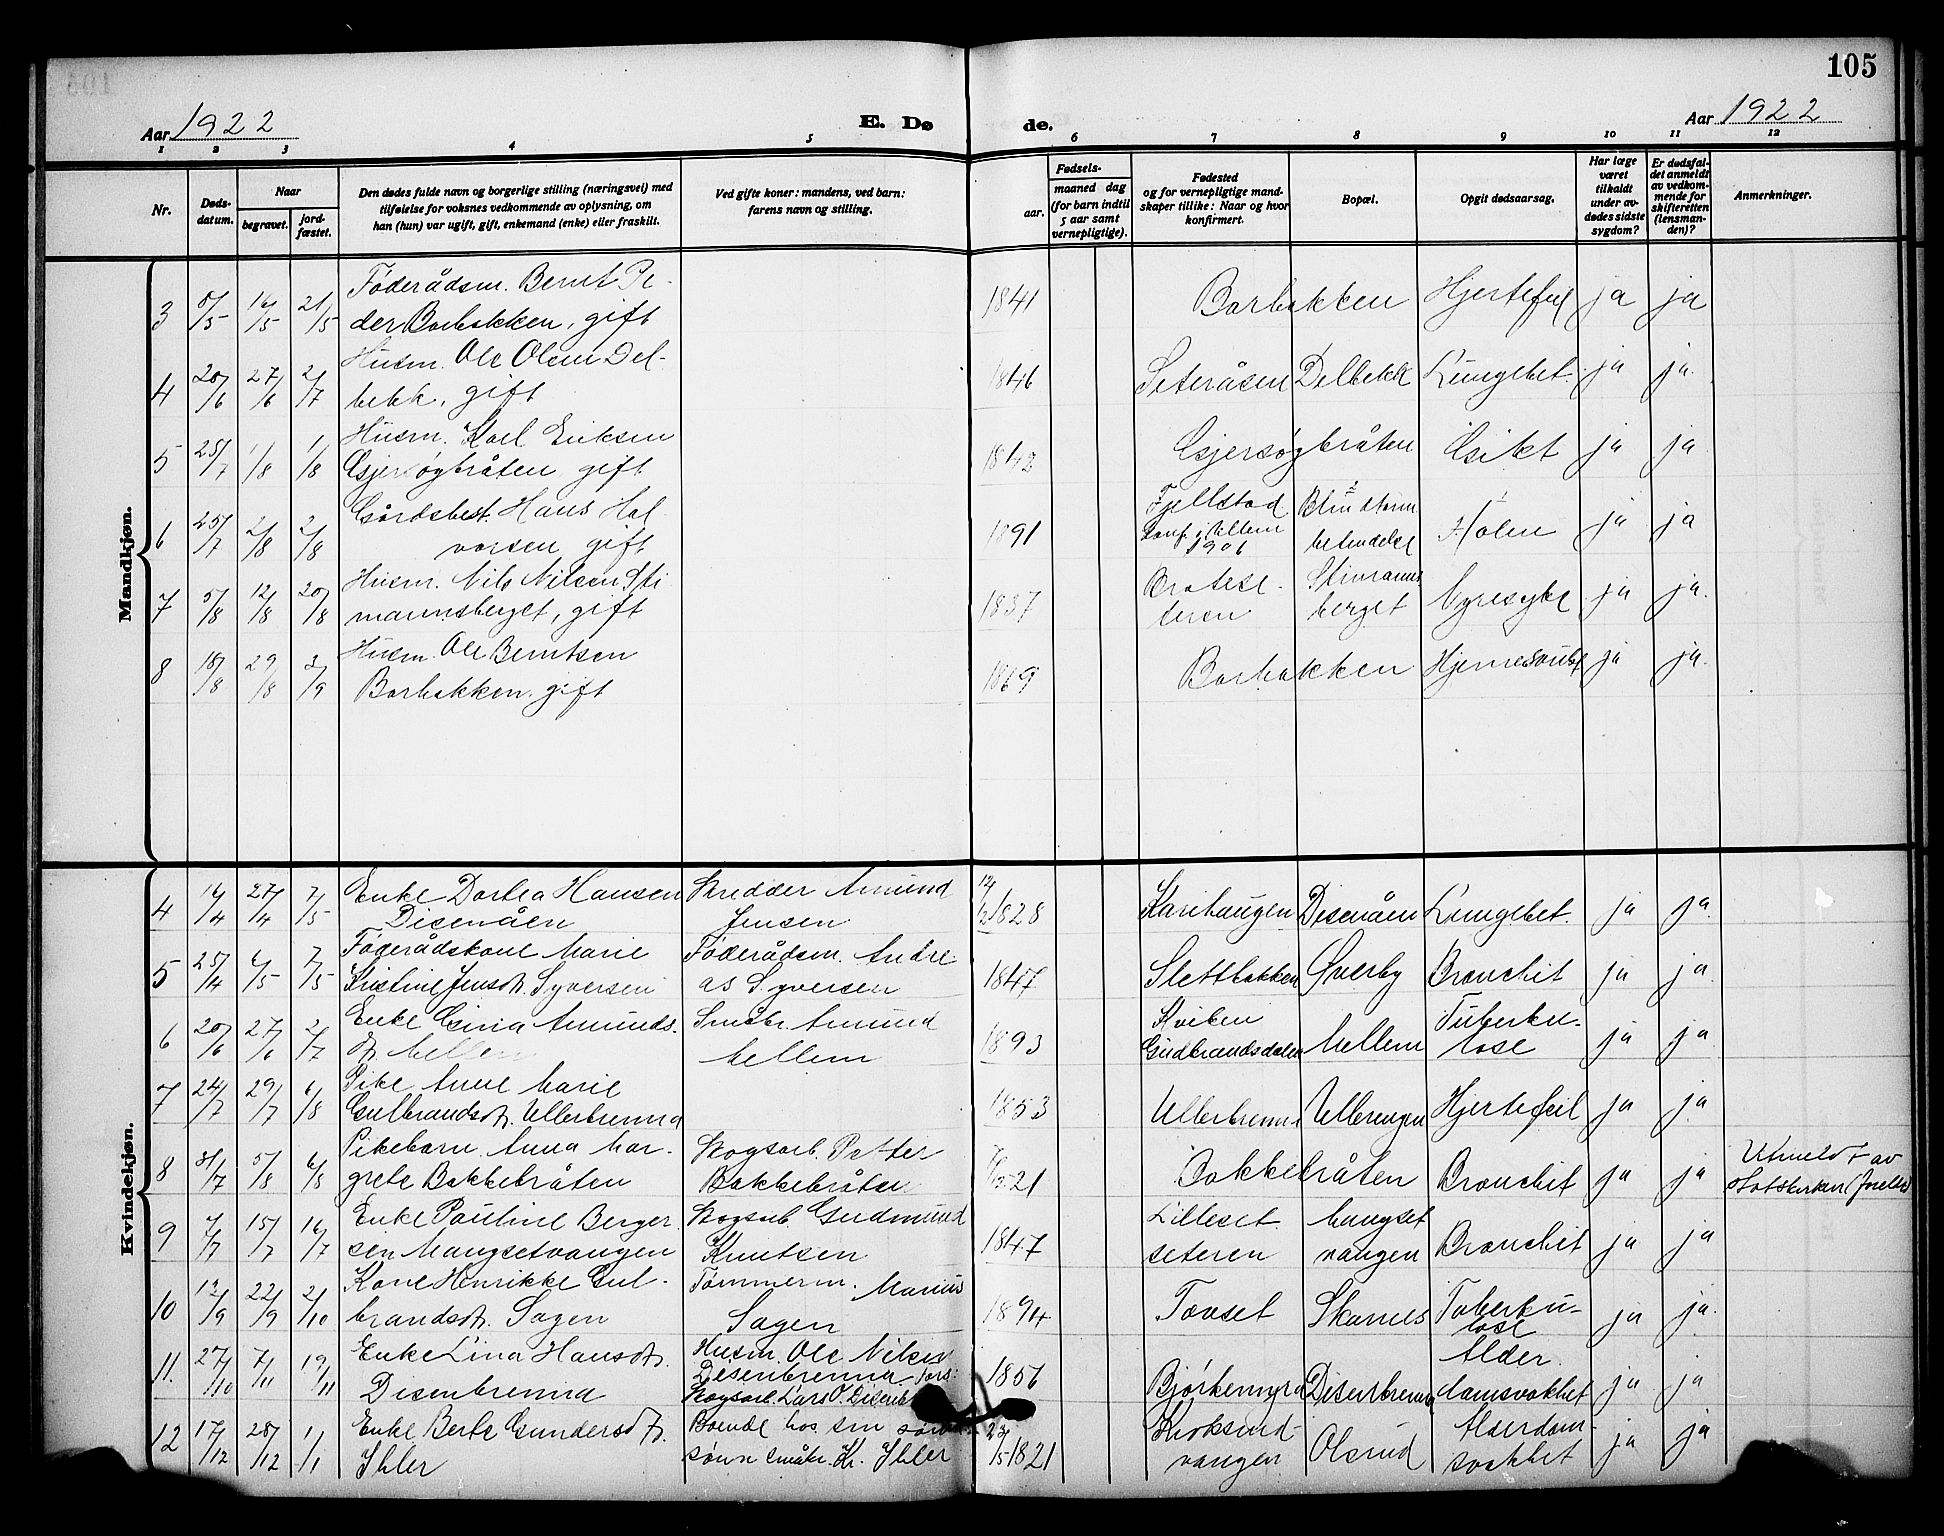 105
Aar 1922
E. Dø
de.
Aar 1922
1 2 3 4 5 6 7 8 9 10 11 12
Nr.
Døds-
datum.
Naar
begravet.
jord-
fæstet.
Den dødes fulde navn og borgerlige stilling (næringsvei) med
tilføielse for voksnes vedkommende av oplysning, om
han (hun) var ugift, gift, enkemand (enke) eller fraskilt.
Ved gifte koner: mandens, ved barn:
farens navn og stilling.
Fødsels-
aar.
maaned dag
(for barn indtil
5 aar samt
vernepligtige).
Fødested
og for vernepligtige mand-
skaper tillike: Naar og hvor
konfirmert.
Bopæl.
Opgit dødsaarsag.
Har læge
været
tilkaldt
under av-
dødes sidste
sygdom?
Er dødsfal-
det anmeldt
av vedkom-
mende for
skifteretten
(lensman-
den)?
Anmerkninger.
Mandkjøn.
3 8/5 16/5 21/5 Føderådsm. Bernt Pe-
der Borbakken, gift 1841 Borbakken Hjertefeil ja ja
4 20/6 27/6 2/7 Husm. Ole Olsen Del-
bekk, gift 1846 Seteråsen Delbekk Lungebet. ja ja.
5 25/7 1/8 1/8 Husm. Karl Eriksen
Gjersøgbråten gift 1842 Gjersøgbråten Gikt ja ja
6 25/7 2/8 2/8 Gårdsbest. Hans Hal
vorsen gift 1891 Fjellstad
Konf. i
1906 Blindtarm
betendelse Holen ja ja
7 5/8 12/8 20/8 Husm. Nils Nilsen Sti
mannsberget, gift 1837 Bratese-
teren Stimanns
berget Nyresyke ja ja.
8 18/8 29/8 3/9 Husm. Ole Berntsen
Borbakken gift 1869 Borbakken ja ja.
Kvindekjøn.
4 16/4 27/4 7/5 Enke Dortea Hansen
Disenåen Skredder Amund
Jensen 12/2 1828 Karihaugen Disenåen Lungebet. ja ja.
5 25/4 6/5 7/5 Føderådskone Marie
Kristine Jensdt. Syversen Føderådsm. Andre
as Syversen 1847 Slettbakken Øverby Bronchit ja ja
6 20/6 27/6 2/7 Enke Gina Amunds.
dt. Mellem Småbr. Amund
Mellem 1893 Kviken
Gudbrandsdalen Mellem Tuberku-
lose ja ja.
7 24/7 29/7 6/8 Pike Anne Marie
Gulbrandsdt. Ullerbrenna 1853 Ullerbrenna Ullerengen Hjertefeil ja ja
8 31/7 5/8 6/8 Pikebarn Anna Mar-
grete Bakkebråten Skogsarb. Petter
Bakkebråten 21 Bakkebråten Bronchit ja ja Utmeldt av
Statskirken (foreldre)
9 7/7 15/7 16/7 Enke Pauline Berger
sen Mangsetvangen Skogsarb. Gudmund
Knutsen 1847 Lilleset
seteren Mangset
vangen Bronchit ja ja
10 12/9 22/9 2/10 Kone Henrikke Gul-
brandsdt. Sagen Tømmerm. Marius
Sagen 1894 Tovset Skarnes Tuberku-
lose ja ja.
11. 27/10 7/11 19/11 Enke Lina Hansdt.
Disenbrenna Husm. Ole Nilsen
Disenbrenna
Skogsarb. Lars O. 1856 Bjørkemyra Disenbrenna Alder.
domsvakhet ja ja
12 17/12 28/12 1/1 Enke Berte Gundersdt.
Ihler Boende hos sin
sønn småbr. Kr. Ihler 23/5 1821 Kroksrud-
vangen Olsrud Alderdom
svakhet ja ja